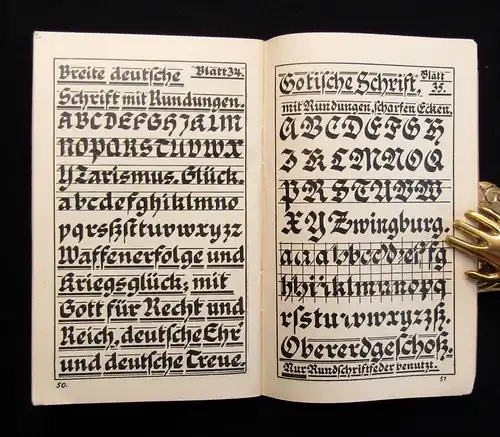 Breite deutsche Blatt 34.
Schrift mit Rundungen.
ABCDEFGHJKLM
NOPQRSTUVWX
YZarismus. Glück.
abcdefghiklmno
pqrsßſtuvwxyzz
Waffenerfolge und
Kriegsglück; mit
Gott für Recht und
Reich, deutſche Ehr'
und deutſche Treue.
50.
Gotische Schrift, Blatt 35.
mit Rundungen, ſcharfen Ecken.
ABCDEFGH
IJKLMNOQ
PRSTUVW
XYZwingburg.
rſstuvwxyzzß.
Obererdgeſchoß.
Nur Rundſchriftfeder benutzt.
51